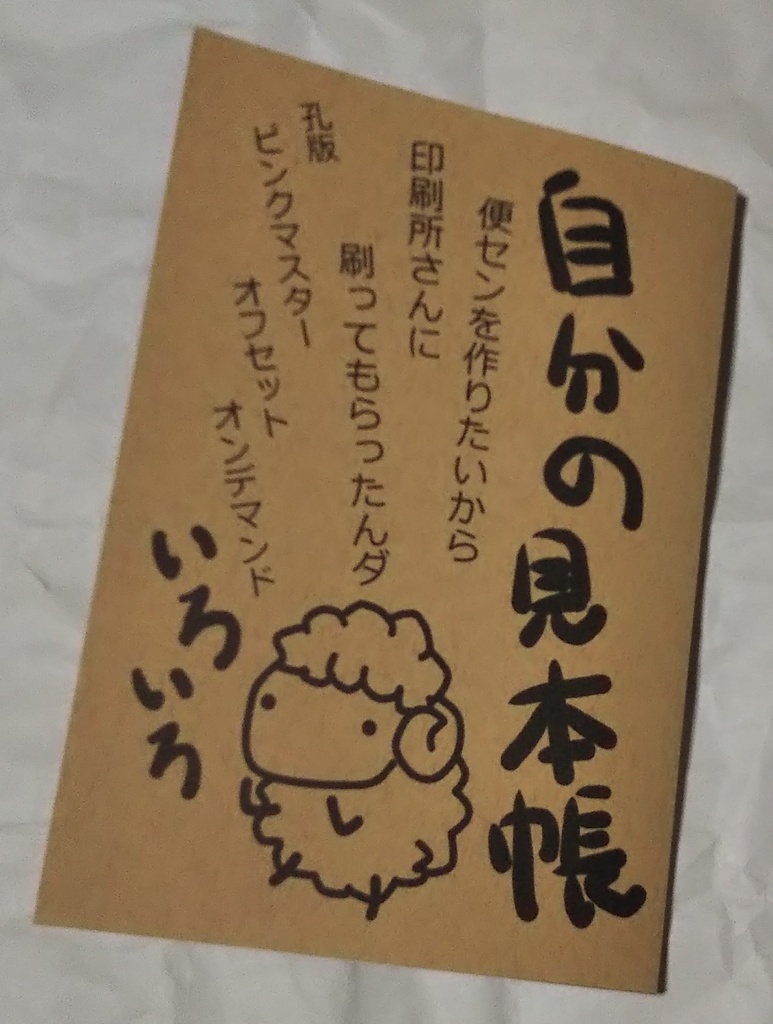 自分の見本帳
便センを作りたいから
印刷所さんに
刷ってもらったんダ
孔版
ピンクマスター
オフセット
オンデマンド
いろ
いろ